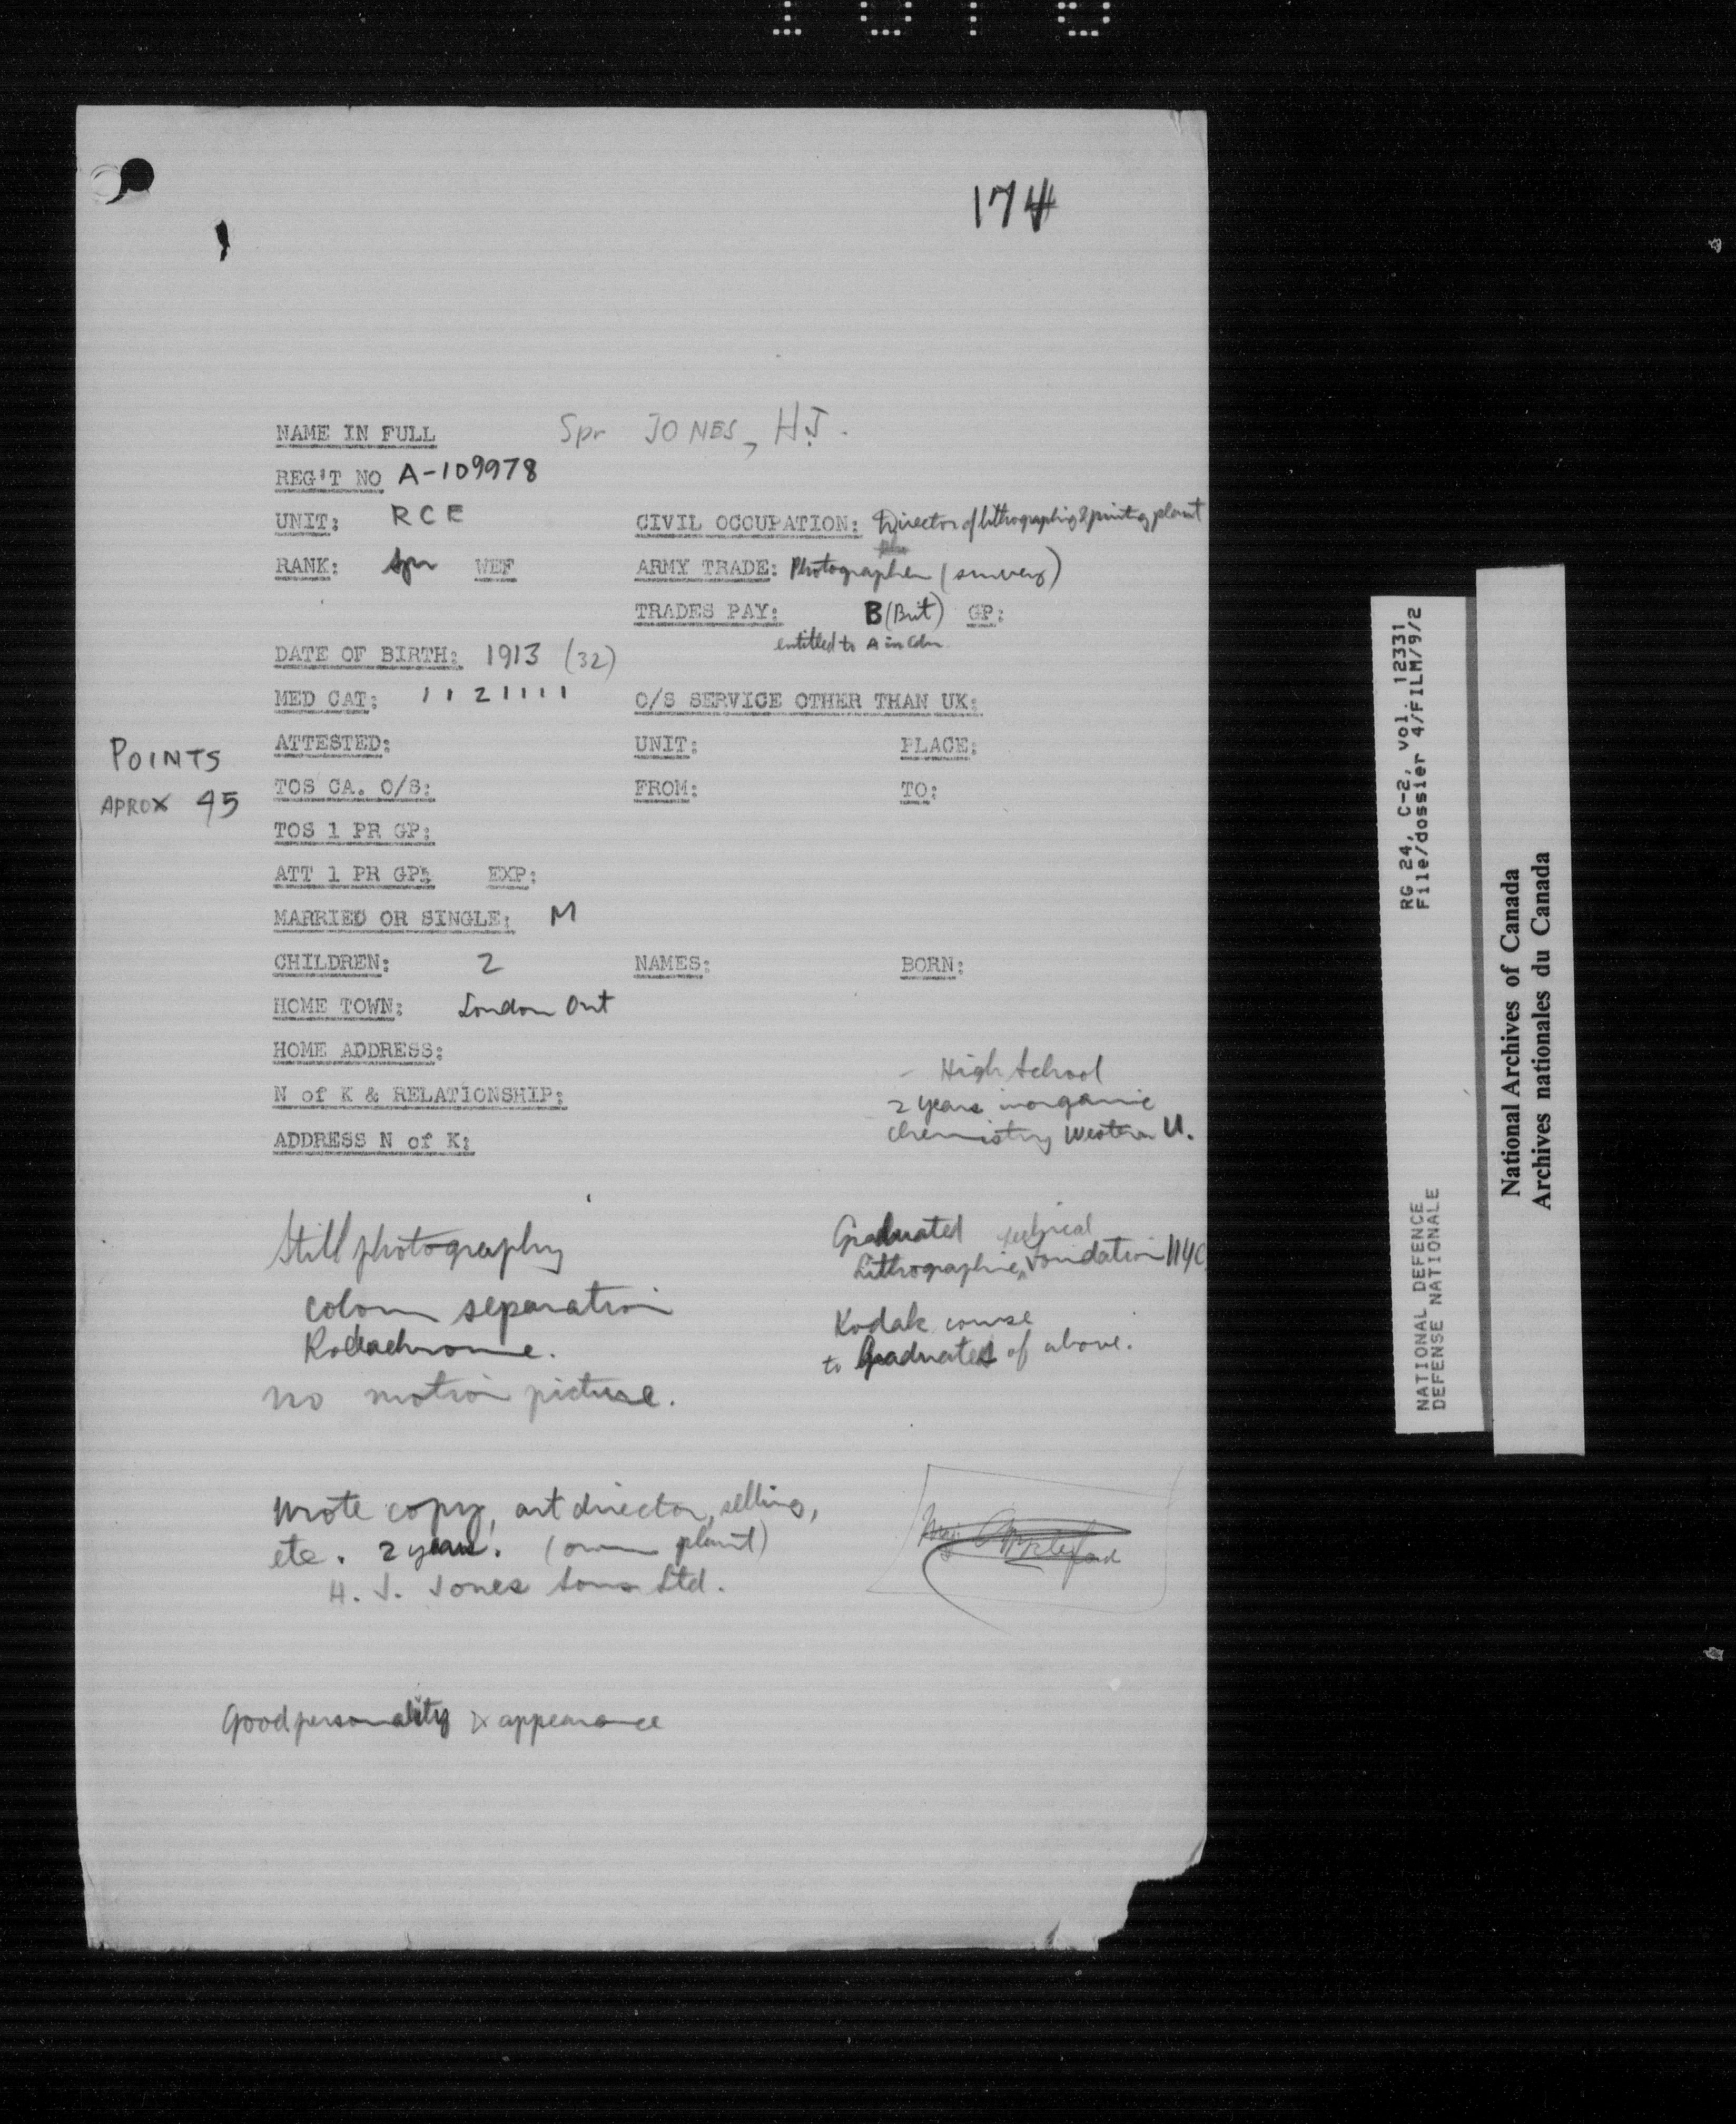 174
NAME IN FULL Spr JONES, H.J.
REG'T NO A-109978
UNIT: RCE CIVIL OCCUPATION: Director of lithographing & printing plant
RANK: Spr WEF ARMY TRADE: Photographer (survey)
TRADES PAY: B (Brit) GP:
entitled to A in Cdn.
DATE OF BIRTH: 1913 (32)
MED CAT: 1121111 O/S SERVICE OTHER THAN UK:
ATTESTED: UNIT: PLACE:
POINTS
APROX 45
TOS CA. O/S: FROM: TO:
TOS 1 PR GP:
ATT 1 PR GP: EXP:
MARRIED OR SINGLE: M
CHILDREN: 2 NAMES: BORN:
HOME TOWN: London Ont
HOME ADDRESS:
N of K & RELATIONSHIP:
ADDRESS N of K:
- High School
2 years inorganic
chemistry Western U.
Still photography
colour separation
Kodachrome.
no motion picture.
Graduated technical
Lithographic Foundation NYC
Kodak course
to Graduates of above.
Wrote copy, art director, selling,
etc. 2 years. (own plant)
H. J. Jones Sons Ltd.
Maj
Good personality & appearance
RG 24, C-2, vol. 12331
File/dossier 4/FILM/9/2
NATIONAL DEFENCE
DEFENSE NATIONALE
National Archives of Canada
Archives nationales du Canada